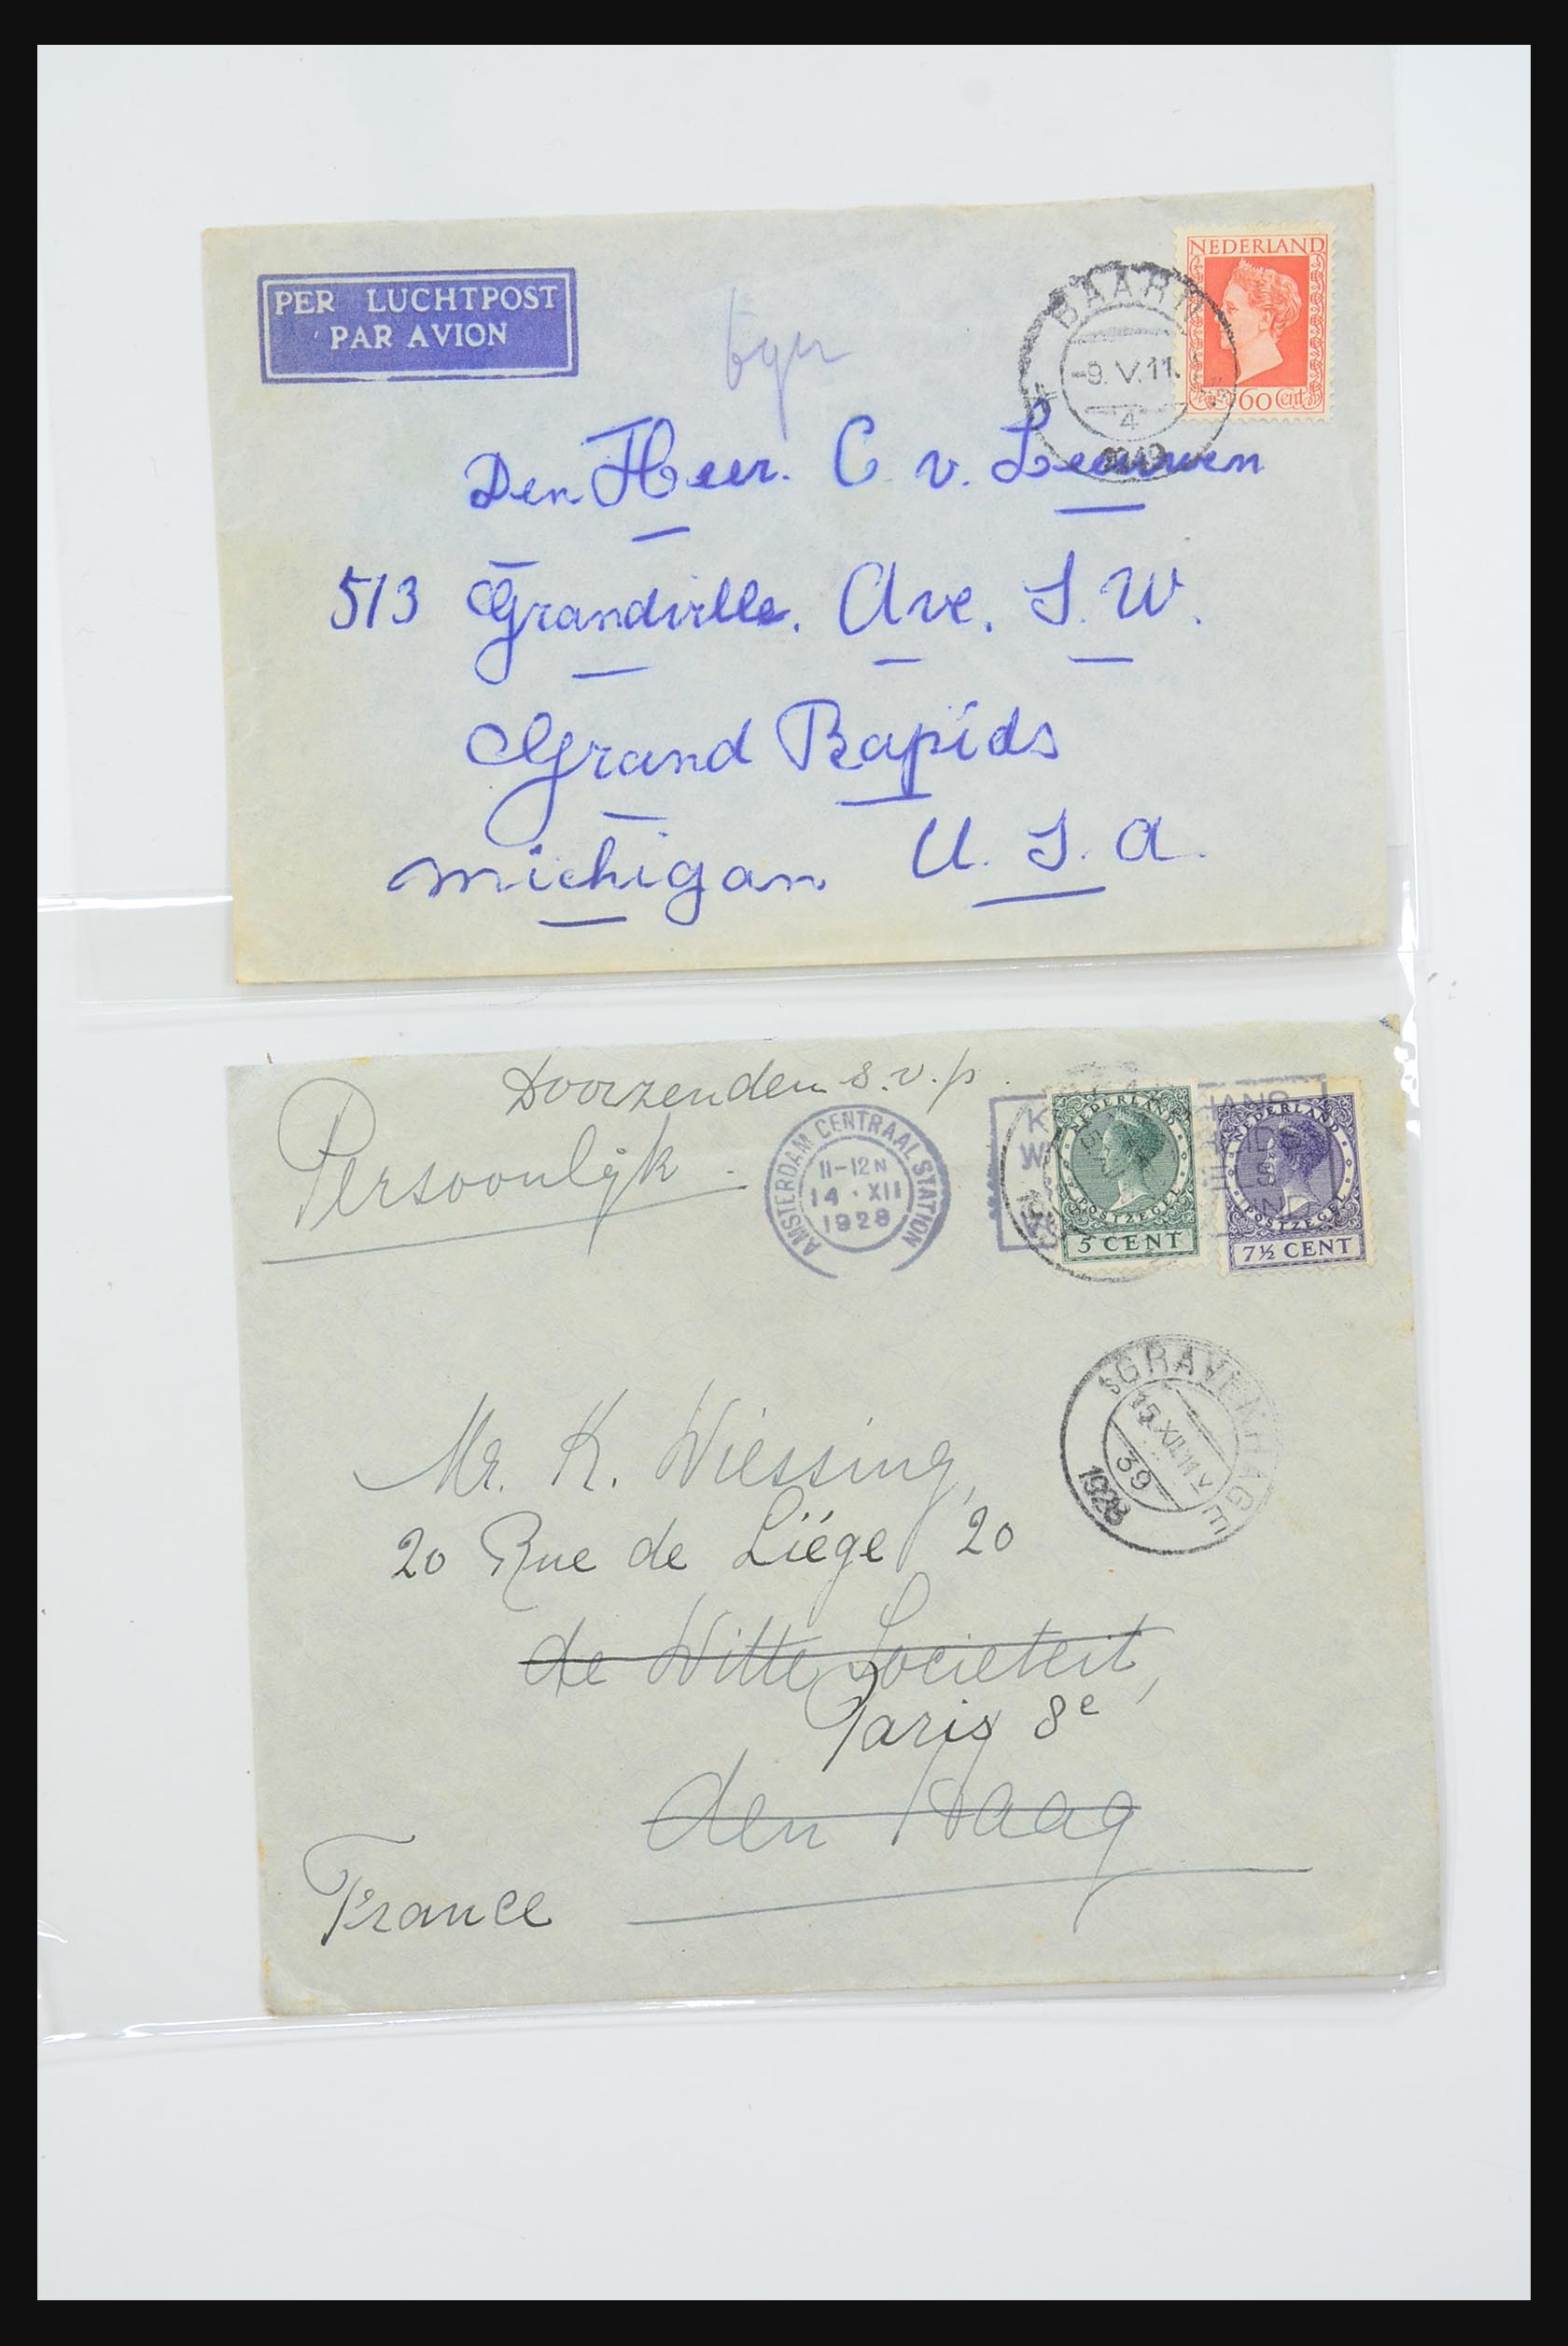 PER LUCHTPOST
PAR AVION
NEDERLAND
60 Cent
BAARN
-9. V. 11.
4
Den Heer. C. v. Leeuwen
513 Grandville. Ave. S. W.
Grand Rapids
Michigan U. S. A.
Doorzenden s.v.p.
Persoonlijk
AMSTERDAM CENTRAAL STATION
11-12 N
14 · XII
1928
NEDERLAND
POSTZEGEL
5 CENT
NEDERLAND
POSTZEGEL
7½ CENT
'sGRAVENHAGE
15 XII
39
1928
Mr. K. Wiessing,
20 Rue de Liége 20
de Witte Societeit,
Paris 8e
den Haag
France